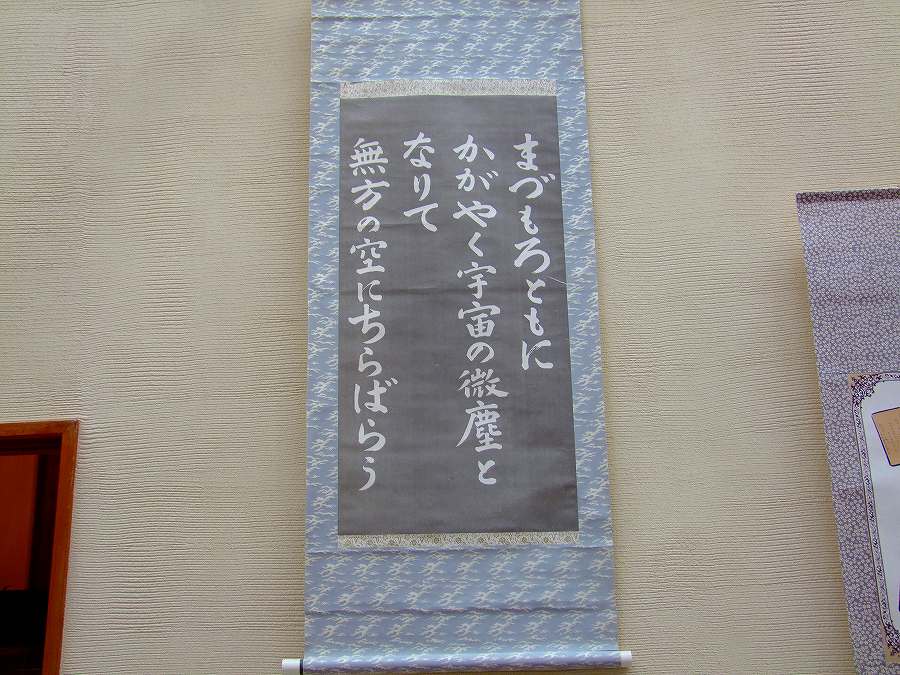 まづもろともに
かがやく宇宙の微塵と
なりて
無方の空にちらばらう